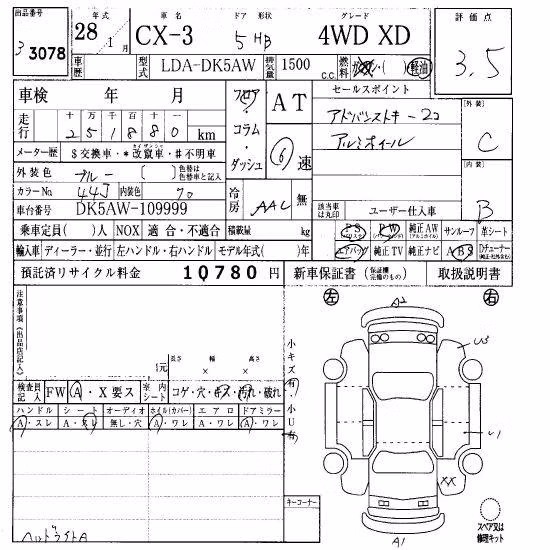 出品番号 年式 車名 ドア 形状 グレード 評価点
3 3078 28年 1月 CX-3 5 HB 4WD XD 3.5
車歴 型式 LDA-DK5AW 排気量 1500 c.c. 燃料 ガソリン・( ) 軽油
車検 年 月 フロア・コラム・ダッシュ AT 6速 セールスポイント
走行 十万 千 百 十 一
251880 km アドバンストキー2コ 外装 C
メーター歴 $交換車・*改竄車・#不明車 アルミホイール
外装色 ブルー 色替 ( ) 色替は色替車と記入 内装 B
カラーNo. 44J 内装色 クロ 冷房 AAC 無 該当車は丸印 ユーザー仕入車
車台番号 DK5AW-109999
乗車定員( )人 NOX 適合・不適合 積載量 kg PS PW 純正AW サンルーフ 革シート
輸入車 ディーラー・並行 左ハンドル・右ハンドル モデル年式( )年 エアバッグ 純正TV 純正ナビ ABS Dチューナー
預託済リサイクル料金 10780円 新車保証書 取扱説明書
注意事項(出品店記入) 左 A2 右
長さ 幅 高さ
1元 × × 小キズ有 U3
検査員記入 FW A・X要ス 室内シート コゲ・穴・キズ・汚れ・破れ 小U有
ハンドル シート オーディオ ホイル(カバー) エアロ ドアミラー
A・スレ A・スレ 無し・穴 A・ワレ A・ワレ A・ワレ U1
XX
キーコーナー
ヘッドライトA A1 スペア又は修理キット